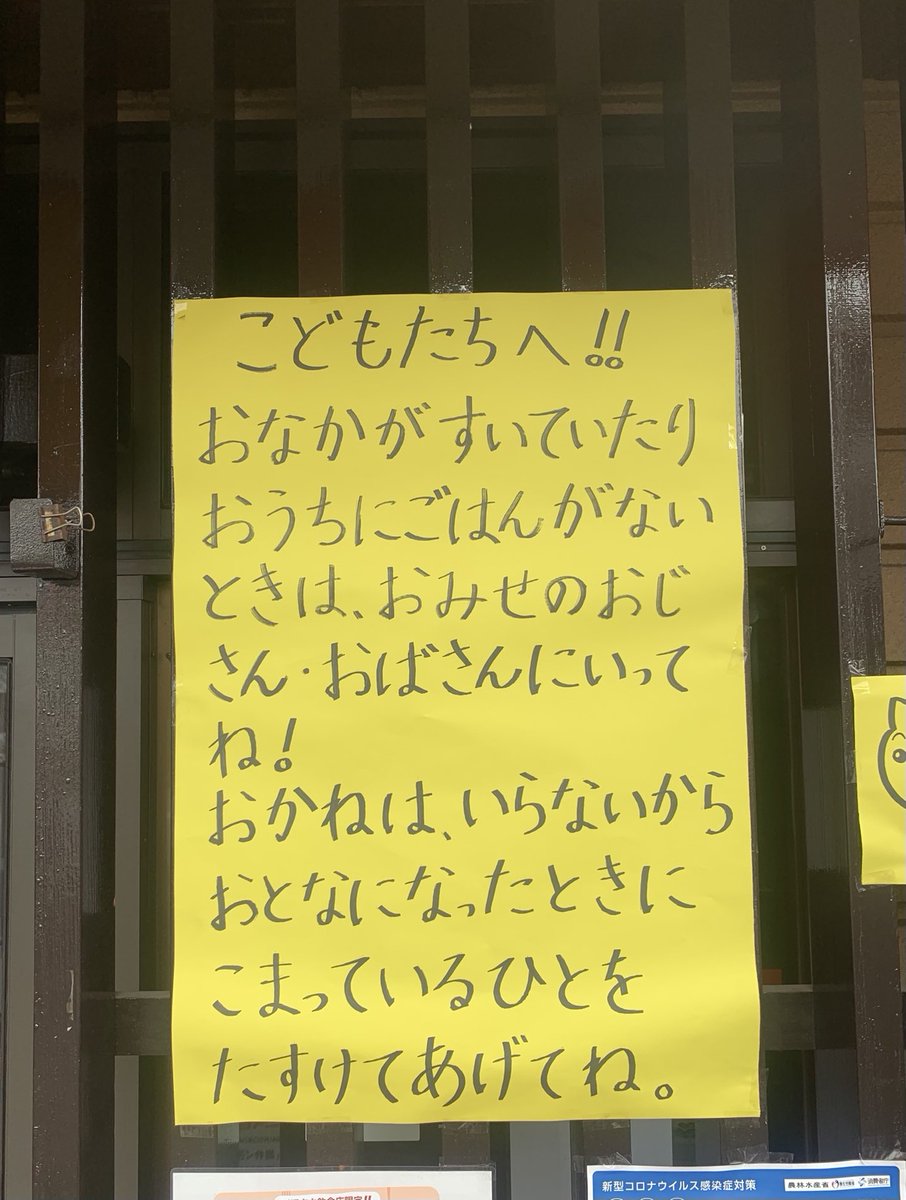 こどもたちへ!!
おなかがすいていたり
おうちにごはんがない
ときは、おみせのおじ
さん・おばさんにいって
ね!
おかねは、いらないから
おとなになったときに
こまっているひとを
たすけてあげてね。
新型コロナウイルス感染症対策
農林水産省
消費者庁